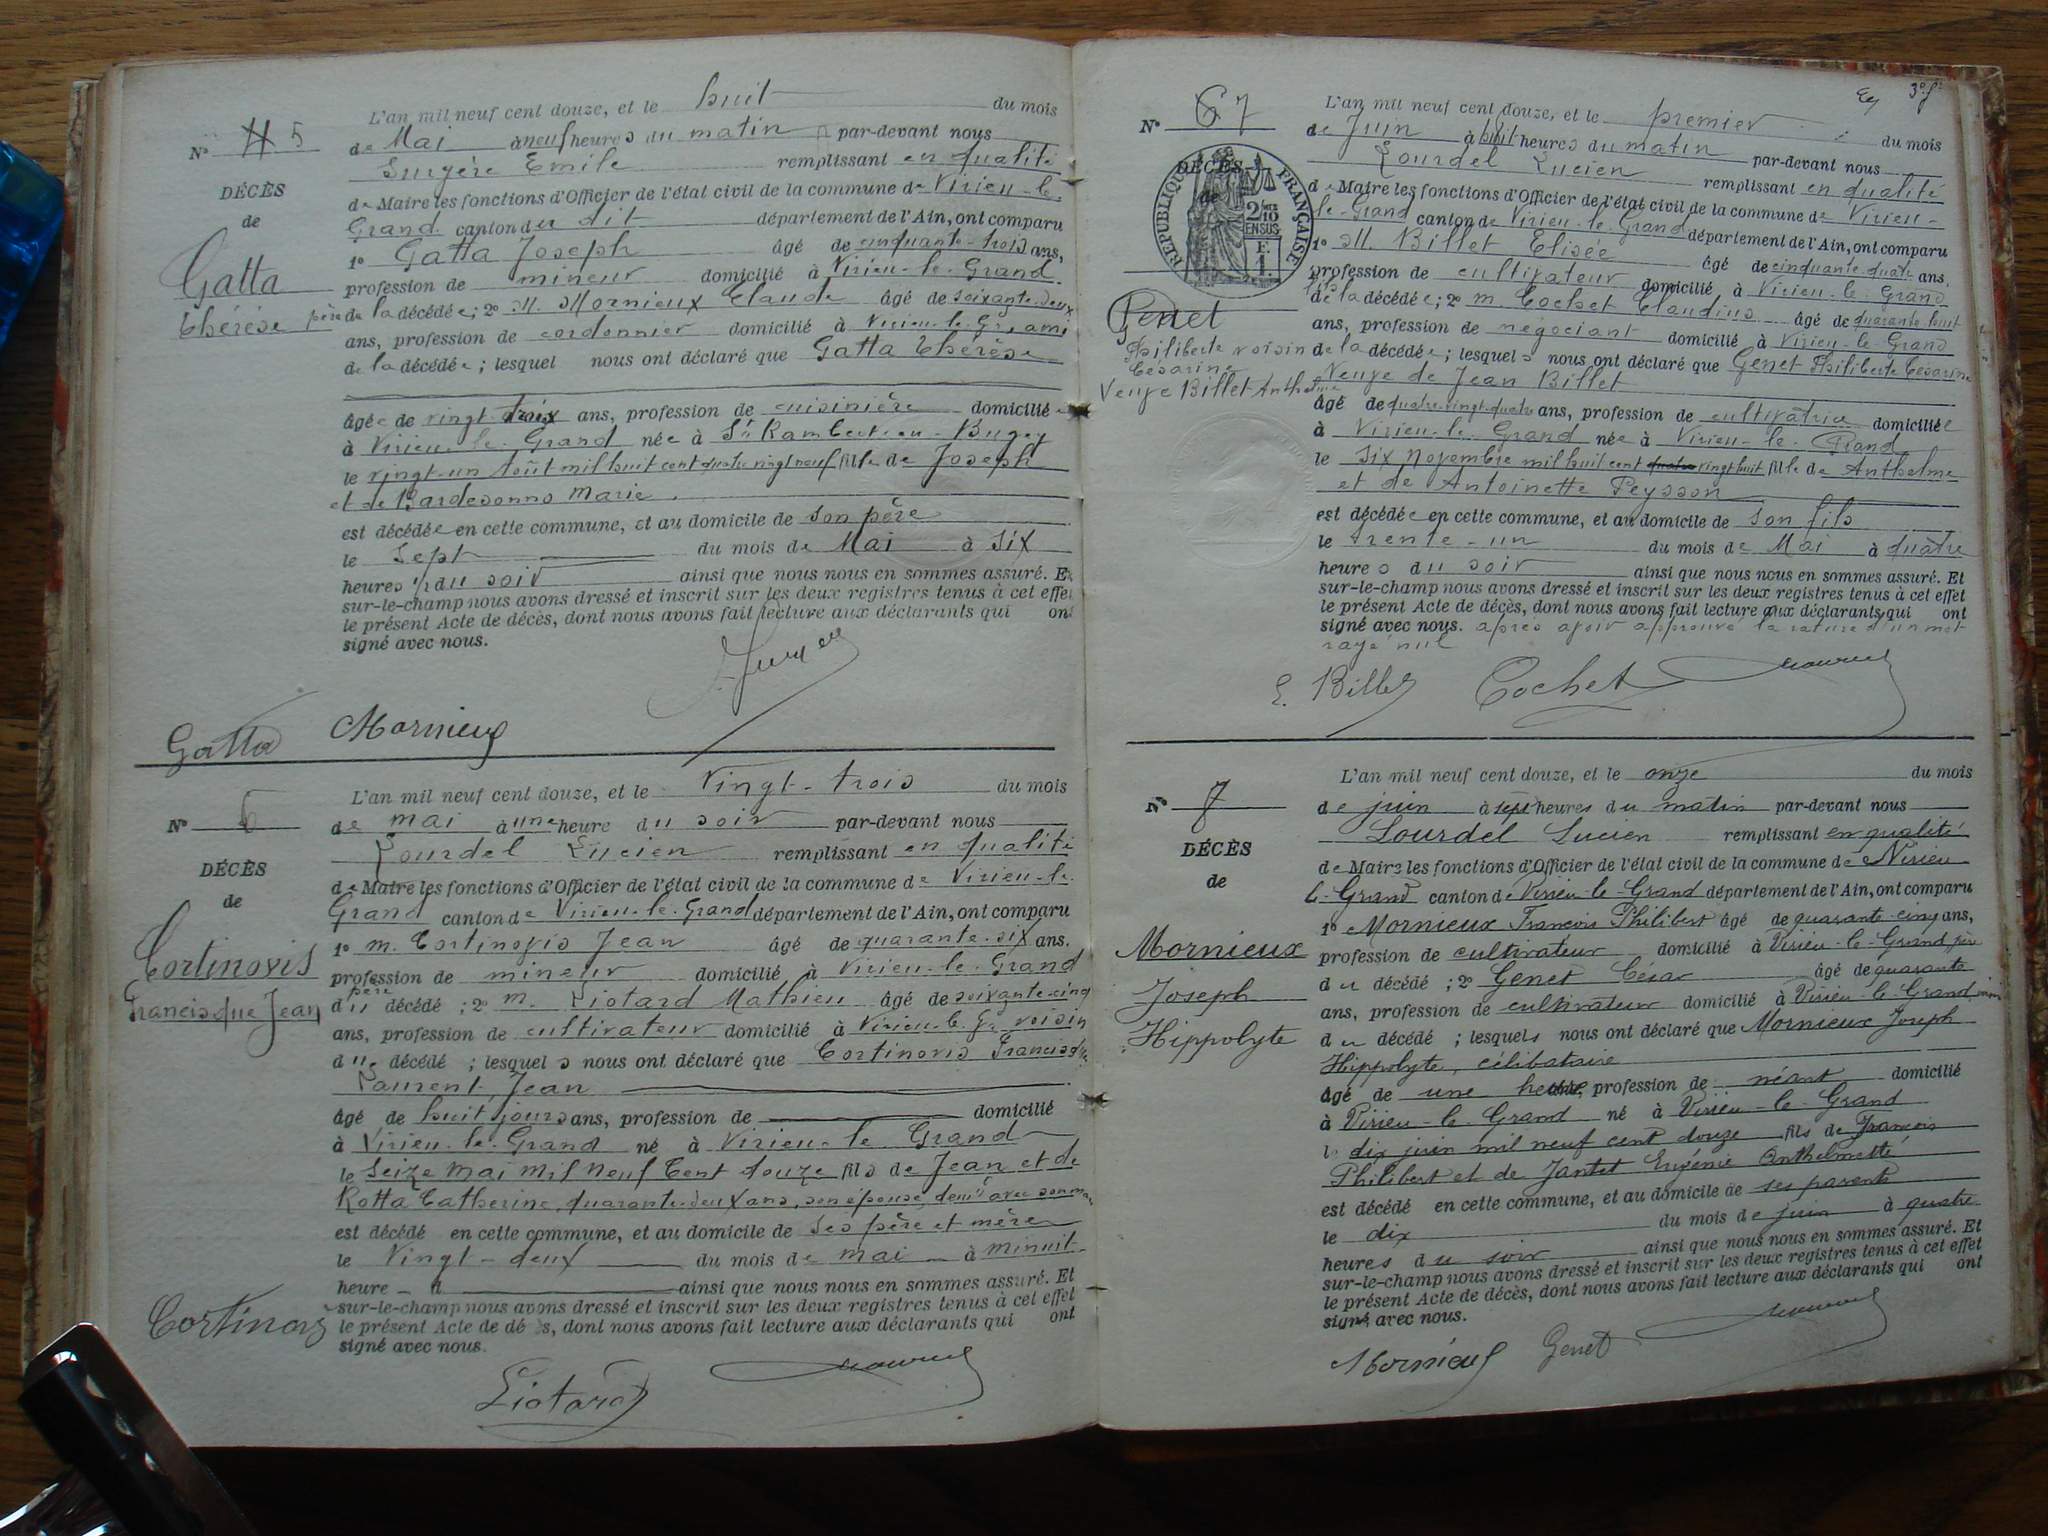 L'an mil neuf cent douze, et le huit du mois
N° 5
de Mai à neuf heures du matin par-devant nous
Surgère Emile remplissant en qualité
DÉCÈS
de Maire les fonctions d'Officier de l'état civil de la commune de Virieu-le-
de
Grand canton du dit département de l'Ain, ont comparu
1° Gatta Joseph âgé de cinquante-trois ans,
Gatta
profession de mineur domicilié à Virieu-le-Grand
Thérèse
père de la décédée; 2° M. Mornieux Claude âgé de soixante-deux
ans, profession de cordonnier domicilié à Virieu-le-Gr, ami
de la décédée; lesquel nous ont déclaré que Gatta Thérèse
âgée de vingt-trois ans, profession de cuisinière domiciliée
à Virieu-le-Grand née à St Rambert-en-Bugey
le vingt-un août mil huit cent quatre vingt neuf fille de Joseph
et de Bardesonno Marie.
est décédée en cette commune, et au domicile de son père
le sept du mois de Mai à six
heures du soir ainsi que nous nous en sommes assuré. Et
sur-le-champ nous avons dressé et inscrit sur les deux registres tenus à cet effet
le présent Acte de décès, dont nous avons fait lecture aux déclarants qui ont
signé avec nous.
Gatta Mornieux
L'an mil neuf cent douze, et le Vingt-trois du mois
N° 6
de mai à une heure du soir par-devant nous
Lourdel Lucien remplissant en qualité
DÉCÈS
de Maire les fonctions d'Officier de l'état civil de la commune de Virieu-le-
de
Grand canton de Virieu-le-Grand département de l'Ain, ont comparu
1° m. Cortinovis Jean âgé de quarante-six ans.
Cortinovis
profession de mineur domicilié à Virieu-le-Grand
père
Francisque Jean
du décédé; 2° m. Liotard Mathieu âgé de soixante-cinq
ans, profession de cultivateur domicilié à Virieu-le-Gr voisin
du décédé; lesquels nous ont déclaré que Cortinovis Francisque
Laurent, Jean
âgé de huit jours ans, profession de domicilié
à Virieu-le-Grand né à Virieu-le Grand
le Seize mai mil neuf Cent douze fils de Jean et de
Rotta Catherine, quarante-deux ans, son épouse, demt avec son mari
est décédé en cette commune, et au domicile de Ses père et mère
le Vingt-deux du mois de mai à minuit
heure d ainsi que nous nous en sommes assuré. Et
sur-le-champ nous avons dressé et inscrit sur les deux registres tenus à cet effet
le présent Acte de décès, dont nous avons fait lecture aux déclarants qui ont
signé avec nous.
Cortinovis
Liotard
L'an mil neuf cent douze, et le premier du mois
N° 7
de Juin à huit heures du matin par-devant nous
Lourdel Lucien remplissant en qualité
DÉCÈS
de Maire les fonctions d'Officier de l'état civil de la commune de Virieu-
de
le-Grand canton de Virieu-le-Grand département de l'Ain, ont comparu
RÉPUBLIQUE FRANÇAISE
2/10 EN SUS
1° M. Billet Elisée âgé de cinquante-quatre ans,
profession de cultivateur domicilié à Virieu-le-Grand
fils
de la décédée; 2° m. Cochet Claudius âgé de quarante huit
Genet
ans, profession de négociant domicilié à Virieu-le-Grand
Philiberte
Césarine
voisin de la décédée; lesquels nous ont déclaré que Genet Philiberte Césarine
Veuve Billet
Veuve de Jean Billet
âgée de quatre-vingt-quatre ans, profession de cultivatrice domiciliée
à Virieu-le-Grand née à Virieu-le-Grand
le six novembre mil huit cent quatre vingt huit fille de Anthelme
et de Antoinette Peysson
est décédée en cette commune, et au domicile de son fils
le trente-un du mois de Mai à quatre
heures du soir ainsi que nous nous en sommes assuré. Et
sur-le-champ nous avons dressé et inscrit sur les deux registres tenus à cet effet
le présent Acte de décès, dont nous avons fait lecture aux déclarants qui ont
signé avec nous. après avoir approuvé la rature d'un mot
rayé nul
E. Billet Cochet
L'an mil neuf cent douze, et le onze du mois
N° 8
de juin à sept heures du matin par-devant nous
Lourdel Lucien remplissant en qualité
DÉCÈS
de Maire les fonctions d'Officier de l'état civil de la commune de Virieu
de
L-Grand canton de Virieu-le-Grand département de l'Ain, ont comparu
1° Mornieux François Philibert âgé de quarante-cinq ans,
Mornieux
profession de cultivateur domicilié à Virieu-le-Grand père
Joseph
du décédé; 2° Genet César âgé de quarante
ans, profession de cultivateur domicilié à Virieu-le-Grand
Hippolyte
du décédé; lesquels nous ont déclaré que Mornieux Joseph
Hippolyte, célibataire
âgé de une heure, profession de néant domicilié
à Virieu-le-Grand né à Virieu-le-Grand
le dix juin mil neuf cent douze fils de François
Philibert et de Jantet Eugénie Anthelmette
est décédé en cette commune, et au domicile de ses parents
le dix du mois de juin à quatre
heures du soir ainsi que nous nous en sommes assuré. Et
sur-le-champ nous avons dressé et inscrit sur les deux registres tenus à cet effet
le présent Acte de décès, dont nous avons fait lecture aux déclarants qui ont
signé avec nous.
Mornieux Genet